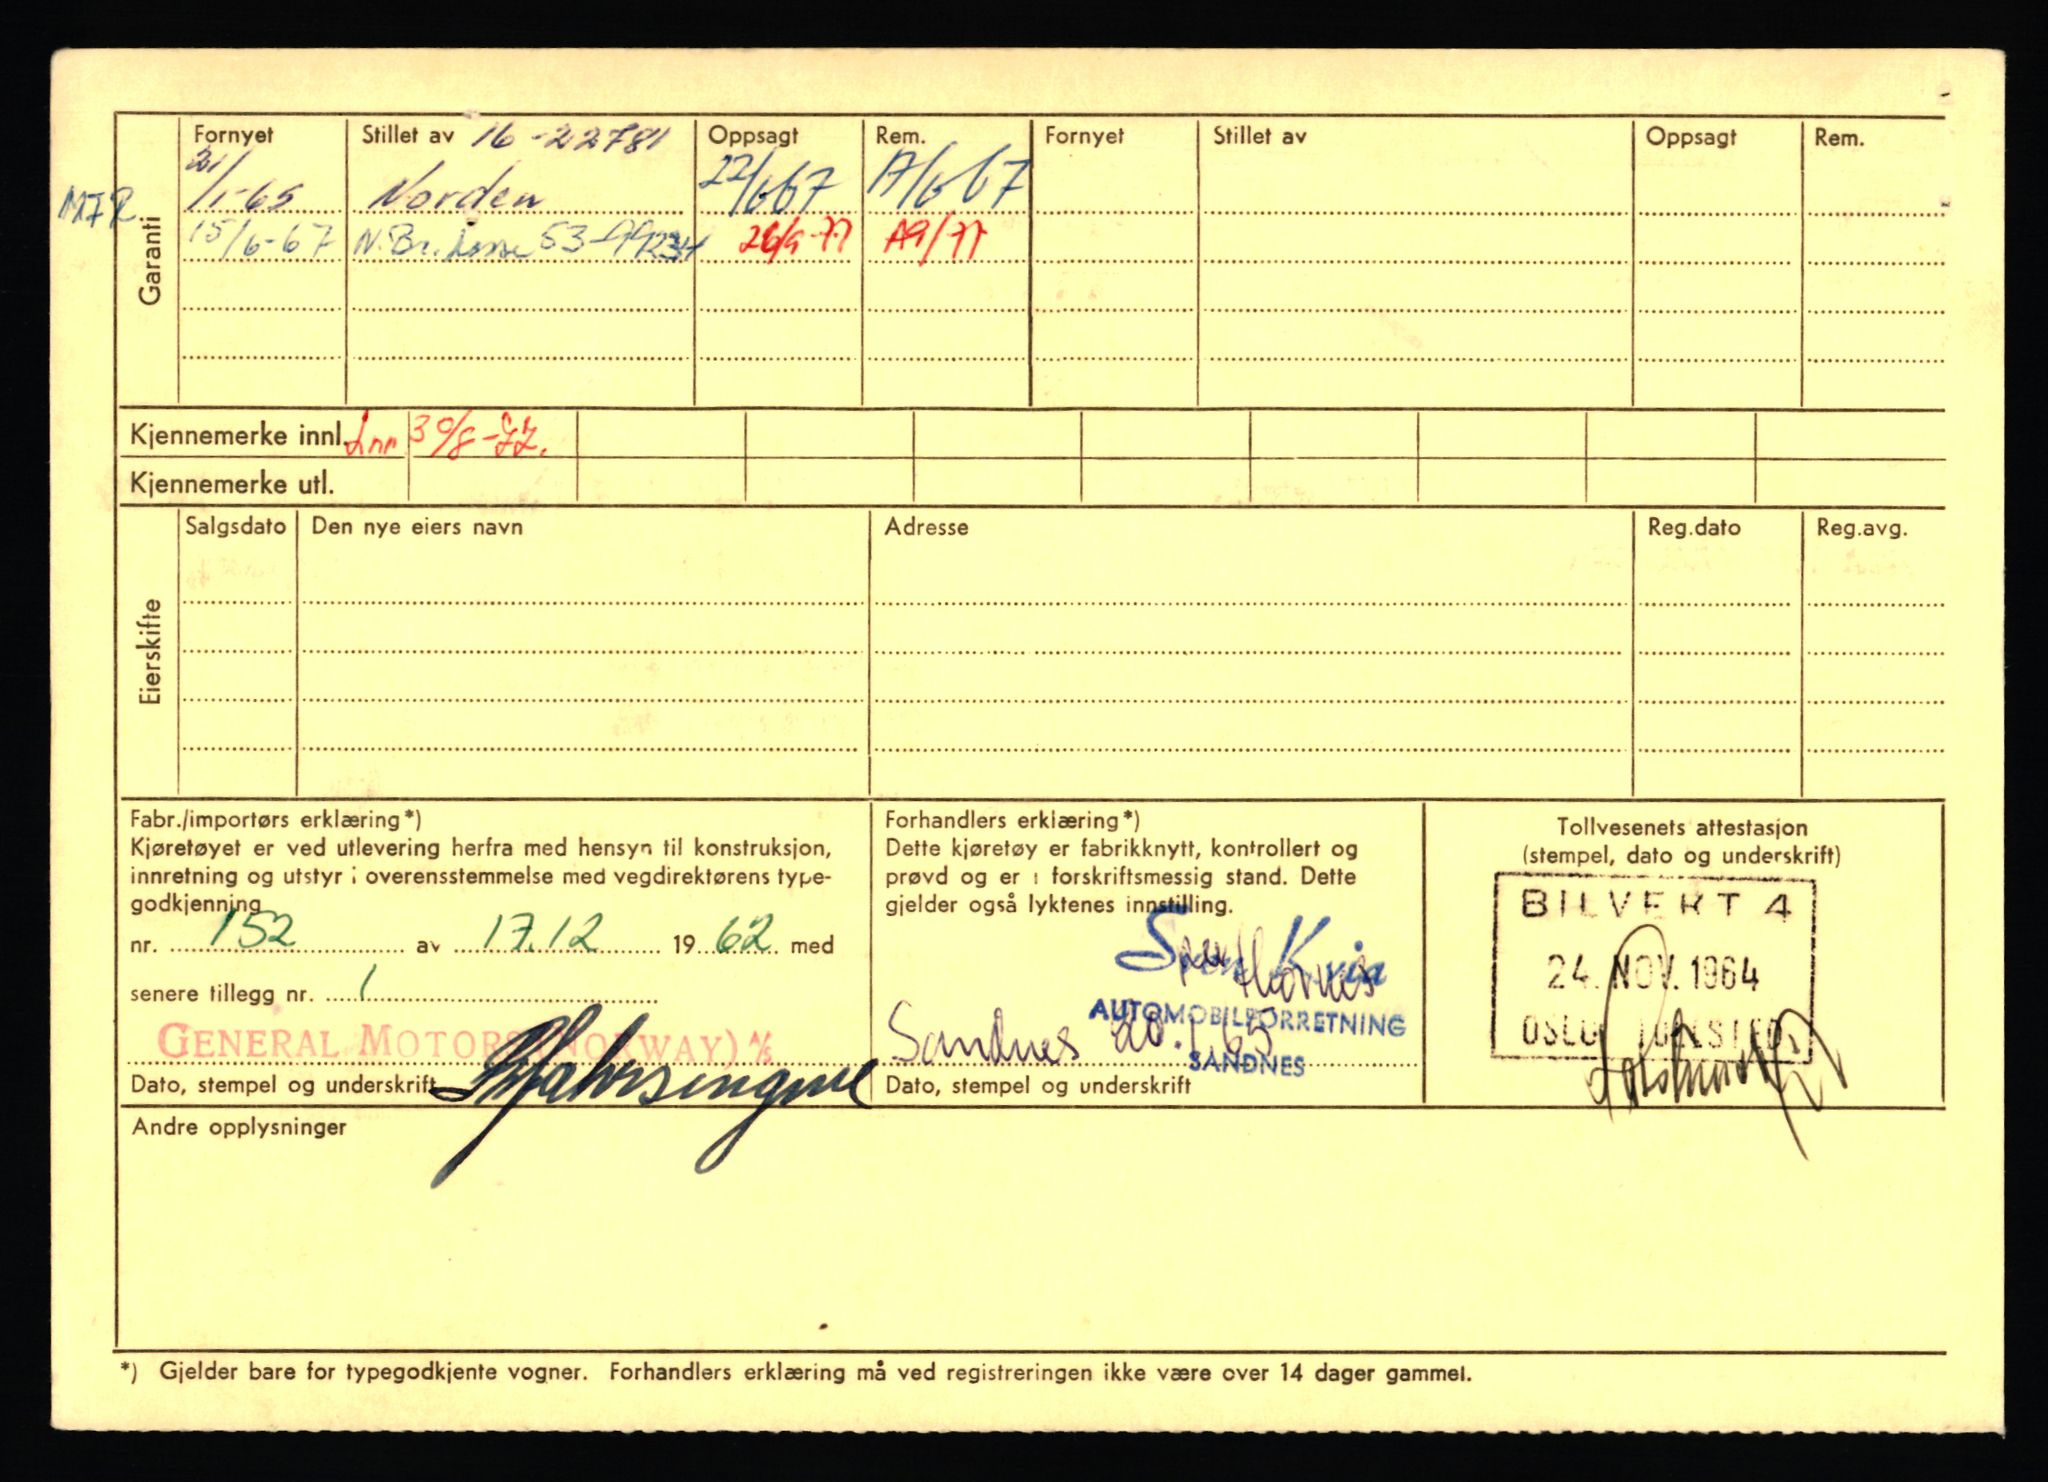 Fornyet Stillet av 16-22781 Oppsagt Rem. Fornyet Stillet av Oppsagt Rem.
Garanti
Norden 22/6 67 A/6 67
15/6-67 N. Br. kasse 53-99234 26/9-77 A9/77
Kjennemerke innl. Inn 30/8-77.
Kjennemerke utl.
Eierskifte
Salgsdato Den nye eiers navn Adresse Reg.dato Reg.avg.
Fabr./importørs erklæring*)
Kjøretøyet er ved utlevering herfra med hensyn til konstruksjon,
innretning og utstyr i overensstemmelse med vegdirektørens type-
godkjenning
nr. 152 av 17.12 1962 med
senere tillegg nr. 1
GENERAL MOTORS (NORWAY) A/S
Dato, stempel og underskrift
Forhandlers erklæring*)
Dette kjøretøy er fabrikknytt, kontrollert og
prøvd og er i forskriftsmessig stand. Dette
gjelder også lyktenes innstilling.
AUTOMOBILFORRETNING
Sandnes 20.1.65
SANDNES
Dato, stempel og underskrift
Tollvesenets attestasjon
(stempel, dato og underskrift)
BILVERT 4
24. NOV. 1964
OSLO TOLLSTED
Andre opplysninger
*) Gjelder bare for typegodkjente vogner. Forhandlers erklæring må ved registreringen ikke være over 14 dager gammel.